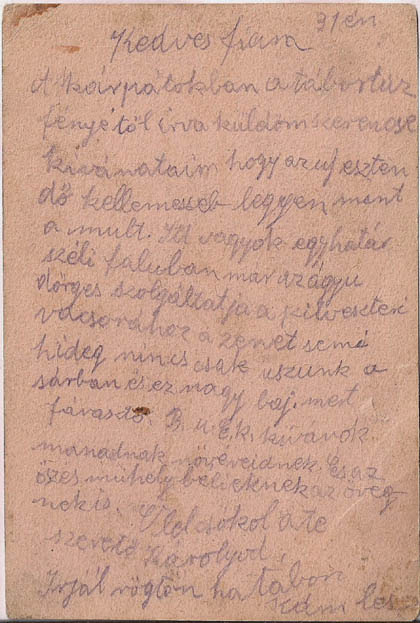 31én
Kedves fiam
A Kárpátokban a tábortüz
fényétöl irva küldöm szerencse
kivánataim hogy az uj eszten
dö kellemeseb legyen mint
a mult. Itt vagyok egy határ
széli faluban mar az ágyu
dörges szolgáltatja a szilveszter
vacsorához a zenét semi
hideg nincs csak uszunk a
sárban és ez nagy baj. mert
fárasztó. B. u. E. k. kivánok
mamádnak növéreidnek. És az
öszes mühely belieknek az öreg
nek is. Ölel csókol a te
szeretö Károlyod,
Irjál rögtön ha tabori